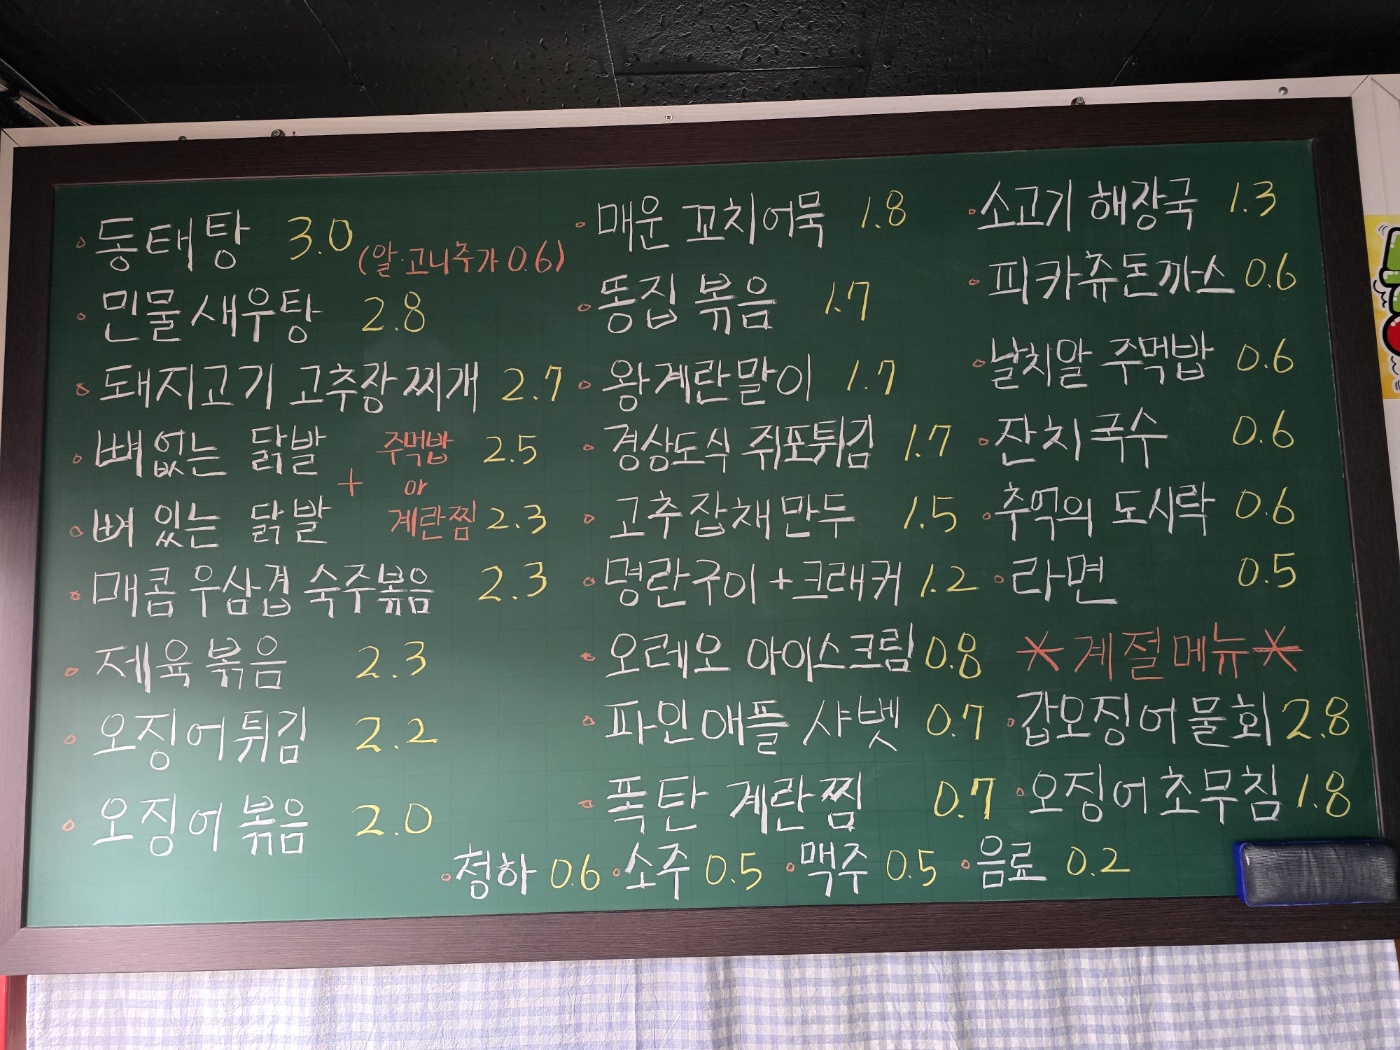 동태탕 3.0 (알·고니추가 0.6)
민물새우탕 2.8
돼지고기 고추장찌개 2.7
뼈없는 닭발 + 주먹밥 2.5
or
뼈 있는 닭발 계란찜 2.3
매콤 우삼겹 숙주볶음 2.3
제육볶음 2.3
오징어튀김 2.2
오징어볶음 2.0
매운 꼬치어묵 1.8
똥집 볶음 1.7
왕계란말이 1.7
경상도식 쥐포튀김 1.7
고추잡채만두 1.5
명란구이+크래커 1.2
오레오 아이스크림 0.8
파인애플 샤벳 0.7
폭탄 계란찜 0.7
소고기 해장국 1.3
피카츄돈까스 0.6
날치알 주먹밥 0.6
잔치국수 0.6
추억의 도시락 0.6
라면 0.5
*계절메뉴*
갑오징어물회 2.8
오징어초무침 1.8
청하 0.6 소주 0.5 맥주 0.5 음료 0.2